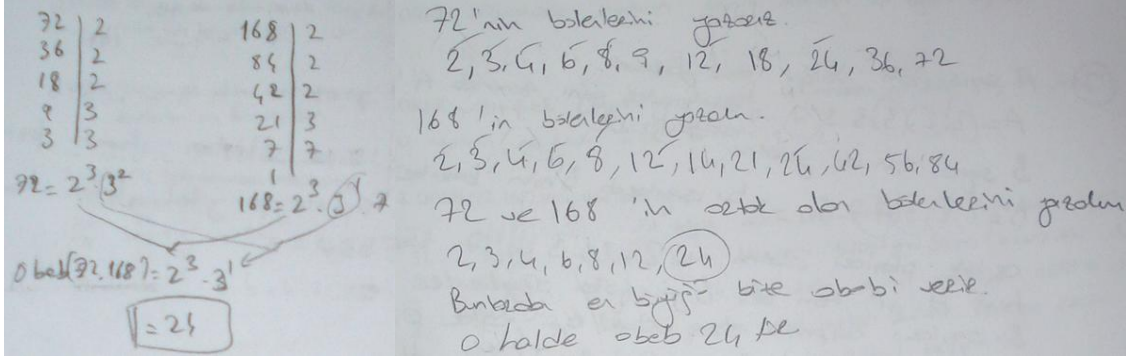 72 | 2
36 | 2
18 | 2
9 | 3
3 | 3
72 = 2³.3²
168 | 2
84 | 2
42 | 2
21 | 3
7 | 7
1
168 = 2³.3¹.7
Obeb(72,168) = 2³.3¹
= 24
72'nin bölenlerini yazarız.
2, 3, 4, 6, 8, 9, 12, 18, 24, 36, 72
168'in bölenlerini yazalım.
2, 3, 4, 6, 8, 12, 14, 21, 24, 42, 56, 84
72 ve 168'in ortak olan bölenlerini yazalım
2, 3, 4, 6, 8, 12, 24
Bunlarda en büyüğü bize obebi verir.
O halde obeb 24 tür